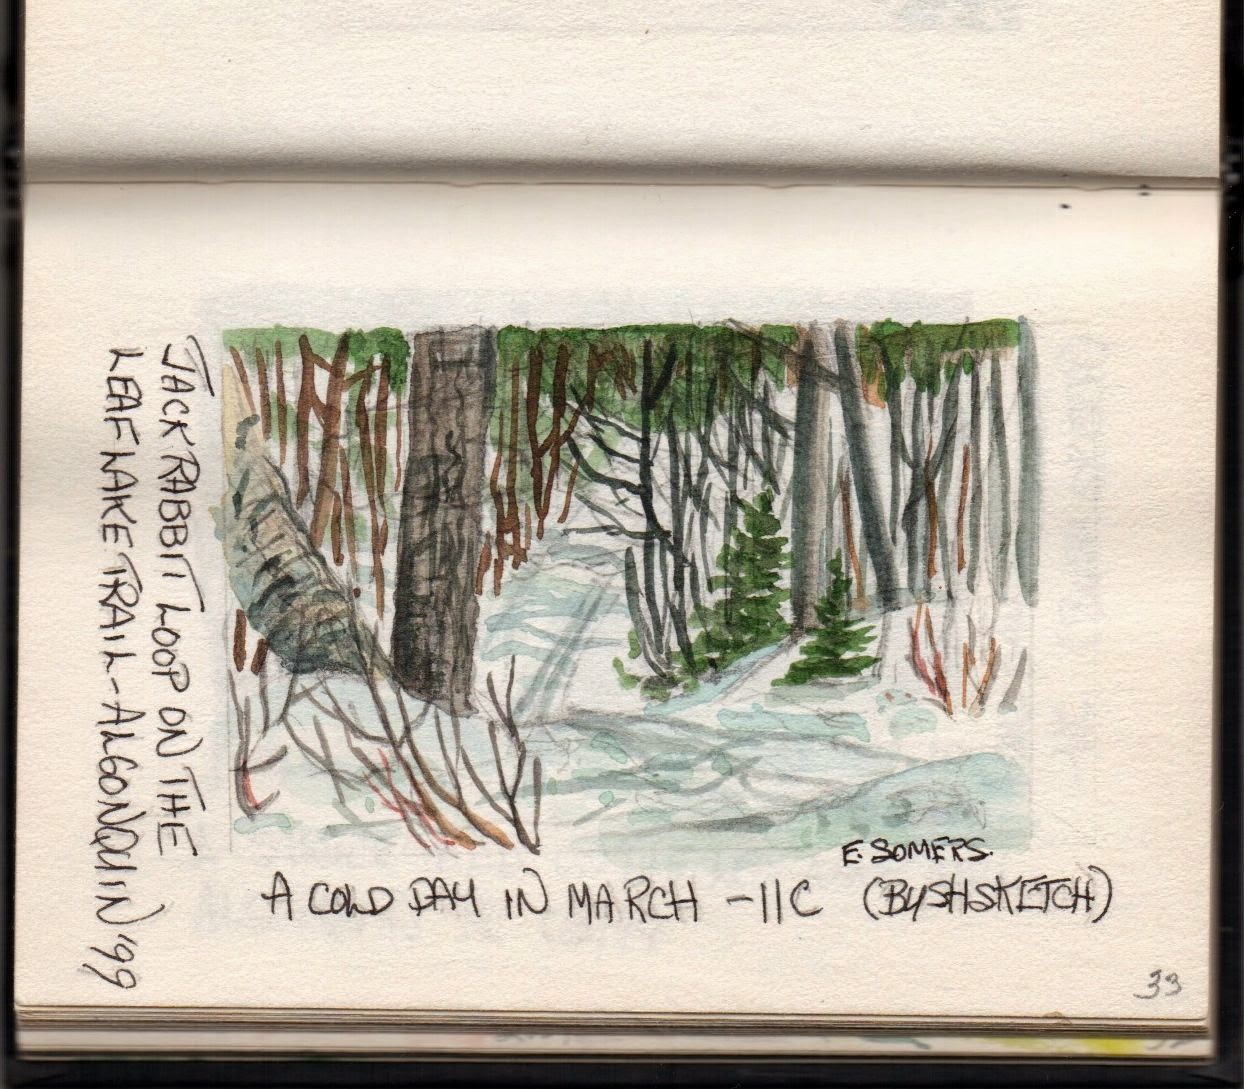 JACK RABBIT LOOP ON THE
LEAF LAKE TRAIL - ALGONQUIN '99
E. SOMERS.
A COLD DAY IN MARCH -11C (BUSHSKETCH)
33